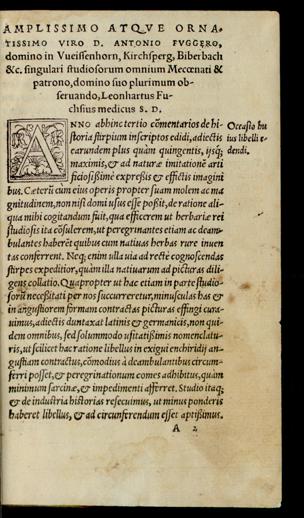 AMPLISSIMO ATQVE ORNA-
TISSIMO VIRO D. ANTONIO FVGGERO,
domino in Vueissenhorn, Kirchsperg, Biberbach
&c. singulari studiosorum omnium Mecœnati &
patrono, domino suo plurimum ob-
seruando, Leonhartus Fu-
chsius medicus S. D.
ANNO abhinc tertio cõmentarios de hi-
storia stirpium inscriptos edidi, adiectis
earundem plus quàm quingentis, ijsq́;
maximis, & ad naturæ imitationẽ arti
ficiosißimè expreßis & effictis imagini
bus. Cæterũ cum eius operis propter suam molem ac ma
gnitudinem, non nisi domi usus esse poßit, de ratione ali-
qua mihi cogitandum fuit, qua efficerem ut herbariæ rei
studiosis ita cõsulerem, ut peregrinantes etiam ac deam-
bulantes haberẽt quibus cum natiuas herbas rure inuen
tas conferrent. Neq; enim ulla uia ad rectè cognoscendas
stirpes expeditior, quàm illa natiuarum ad picturas dili-
gens collatio. Quapropter ut hac etiam in parte studio-
sorũ neceßitati per nos succurreretur, minusculas has &
in angustiorem formam contractas picturas effingi cura-
uimus, adiectis duntaxat latinis & germanicis, non qui-
dem omnibus, sed solummodo usitatißimis nomenclatu-
ris, ut scilicet hac ratione libellus in exigui enchiridij an-
gustiam contractus, cõmodius à deambulantibus circum-
ferri posset, & peregrinationum comes adhibitus, quàm
minimum sarcinæ, & impedimenti afferret. Studio itaq;
& de industria historias resecuimus, ut minus ponderis
haberet libellus, & ad circunferendum esset aptißimus.
Occasio hu
ius libelli e-
dendi.
A 2